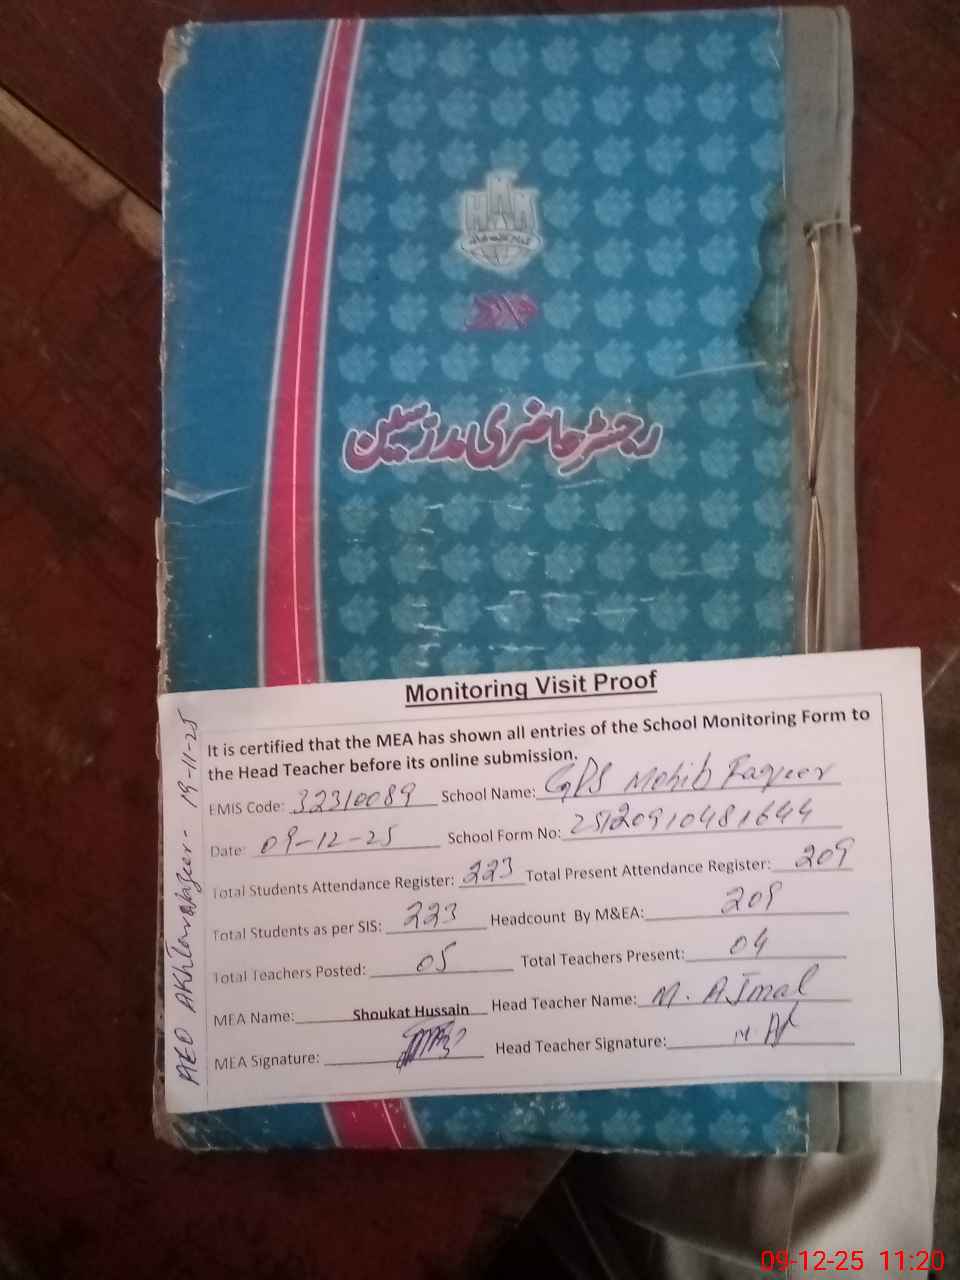 رجسٹر حاضری مدرسین
Monitoring Visit Proof
It is certified that the MEA has shown all entries of the School Monitoring Form to
the Head Teacher before its online submission.
EMIS Code: 32310089 School Name: GPS Mohib Faqeer
Date: 09-12-25 School Form No: 25120910481644
Total Students Attendance Register: 223 Total Present Attendance Register: 209
Total Students as per SIS: 223 Headcount By M&EA: 209
Total Teachers Posted: 05 Total Teachers Present: 04
MEA Name: Shoukat Hussain Head Teacher Name: M. Ajmal
MEA Signature: Head Teacher Signature:
AEO Akhlaq 19-11-25
09-12-25 11:20